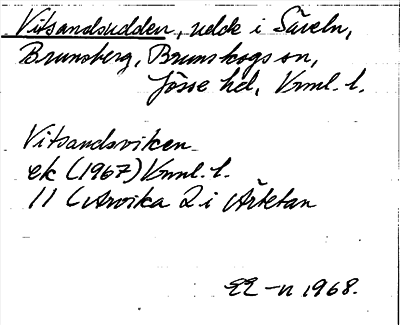 Vitsandsudden, udde i Säveln,
Brunsberg, Brunskogs sn,
Jösse hd, Vrml. l.
Vitsandsviken
ek (1967) Vrml. l.
11 (Arvika 2 i
EE-n 1968.